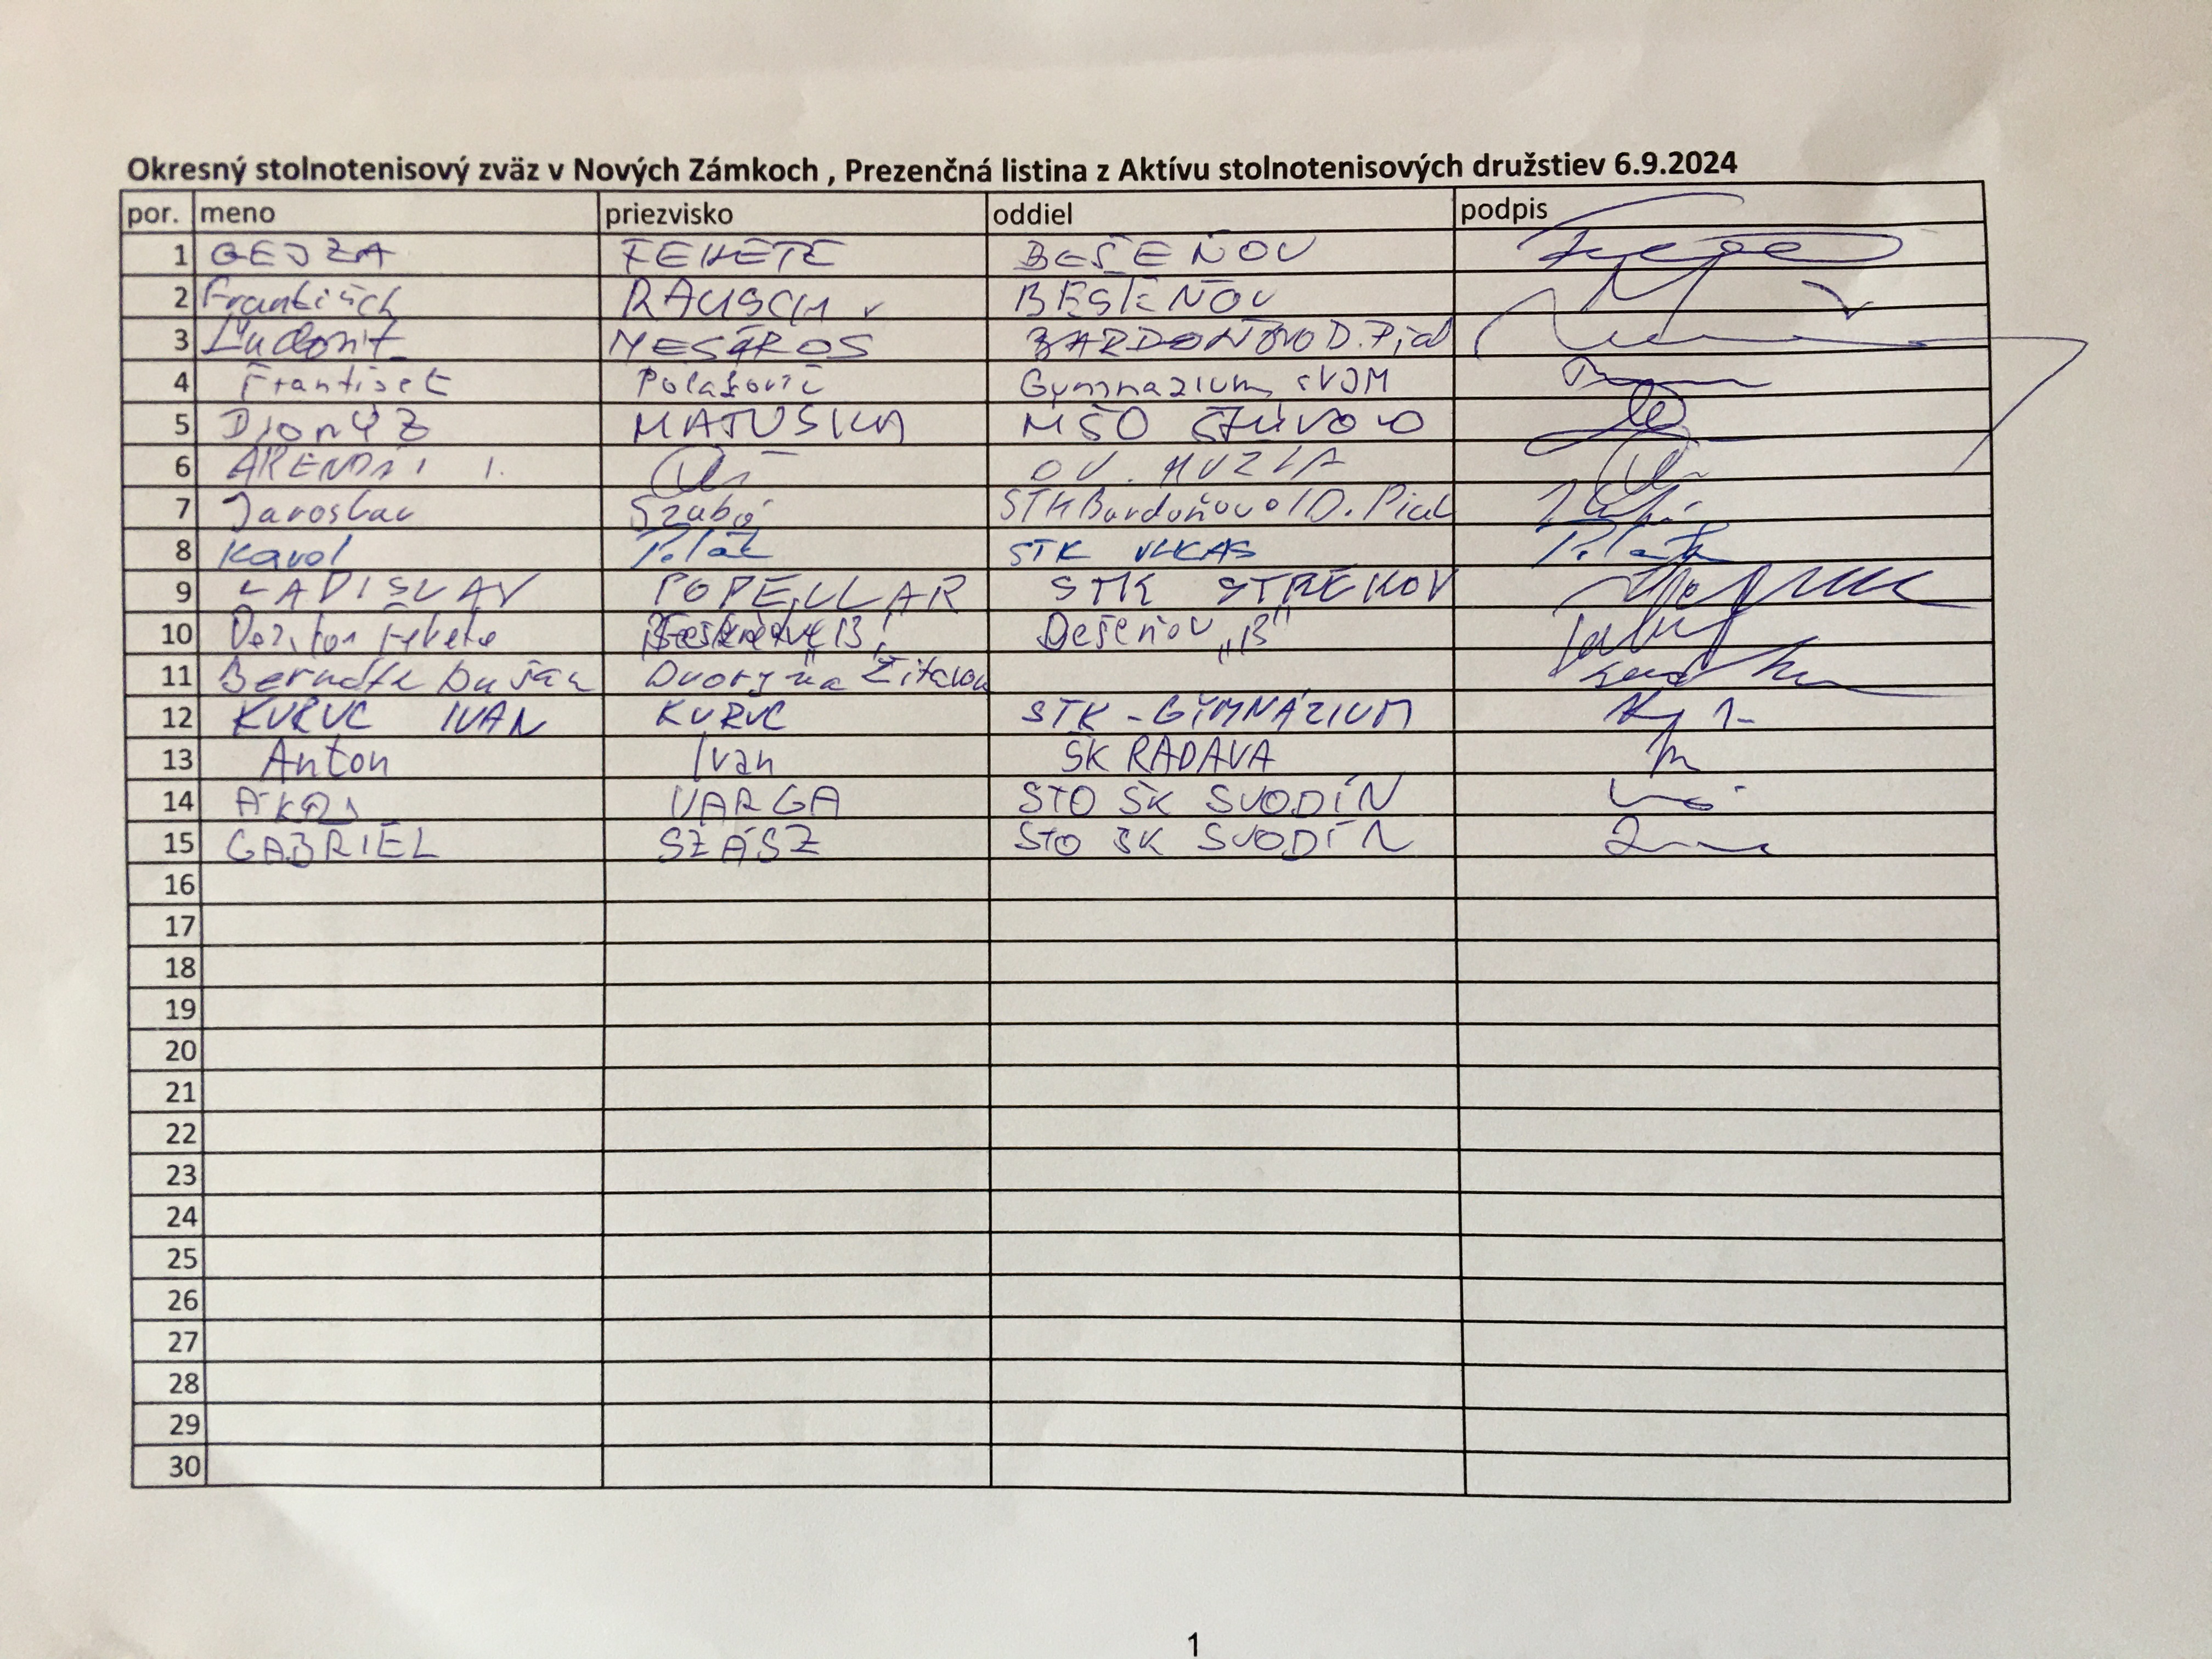 Okresný stolnotenisový zväz v Nových Zámkoch , Prezenčná listina z Aktívu stolnotenisových družstiev 6.9.2024
por. meno priezvisko oddiel podpis
1 GEJZA FEKETE BEŠEŇOV
2 František RAUSCH BEŠEŇOV
3 Ľudovít MESÁROS BARDOŇOVO D. Pial
4 František Polakovič Gymnazium SVJM
5 Dionýz MATUŠKA MŠO ŠTÚROVO
6 ÁRENDÁŠ I. OU. MUZLA
7 Jaroslav Szabó STK Bardoňovo / D. Pial
8 Karol Polák STK VLKAS
9 LADISLAV POPELLAR STK STREKOV
10 Fekete Bešeňov „B"
11 Dušan Dvory na Žitavou
12 KURUC IVAN KURUC STK - GYMNÁZIUM
13 Anton Ivan ŠK RADAVA
14 ÁKOS VARGA STO ŠK SVODÍN
15 GABRIEL SZÁSZ STO ŠK SVODÍN
16
17
18
19
20
21
22
23
24
25
26
27
28
29
30
1